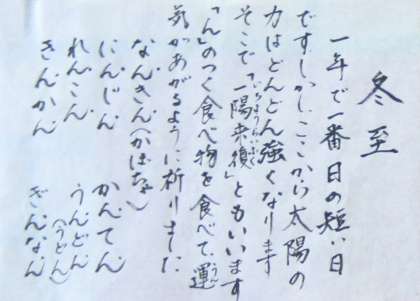 冬至
一年で一番日の短い日
ですしかしここから太陽の
力はどんどん強くなります
いちようらいふく
そこで「一陽来復」ともいいます
「ん」のつく食べ物を食べて運
うん
気があがるように祈りました
なんきん(かぼちゃ)
にんじん かんてん
れんこん うんどん
(うどん)
きんかん ぎんなん